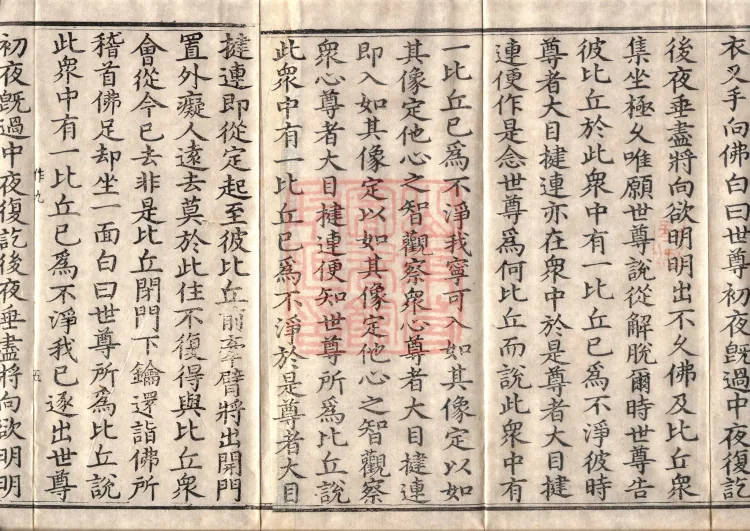 衣叉手向佛白曰世尊初夜旣過中夜復訖
後夜垂盡將向欲明明出不久佛及比丘衆
集坐極久唯願世尊說從解脫爾時世尊告
彼比丘於此衆中有一比丘已爲不淨彼時
尊者大目揵連亦在衆中於是尊者大目揵
連便作是念世尊爲何比丘而說此衆中有
一比丘已爲不淨我寧可入如其像定以如
其像定他心之智觀察衆心尊者大目揵連
即入如其像定以如其像定他心之智觀察
衆心尊者大目揵連便知世尊所爲比丘說
此衆中有一比丘已爲不淨於是尊者大目
揵連即從定起至彼比丘前牽臂將出開門
置外癡人遠去莫於此住不復得與比丘衆
會從今已去非是比丘閉門下鑰還詣佛所
稽首佛足却坐一面白曰世尊所爲比丘說
此衆中有一比丘已爲不淨我已逐出世尊
作九
五
初夜旣過中夜復訖後夜垂盡將向欲明明